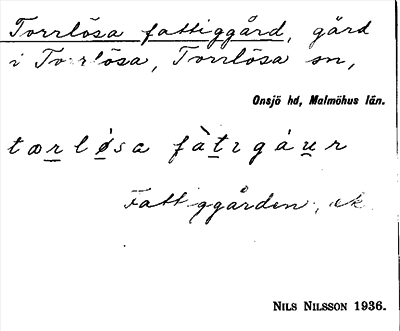 Torrlösa fattiggård, gård
i Torrlösa, Torrlösa sn,
Onsjö hd, Malmöhus län.
tærlǿsa fàtıgáur
Fattiggården, ek.
NILS NILSSON 1936.